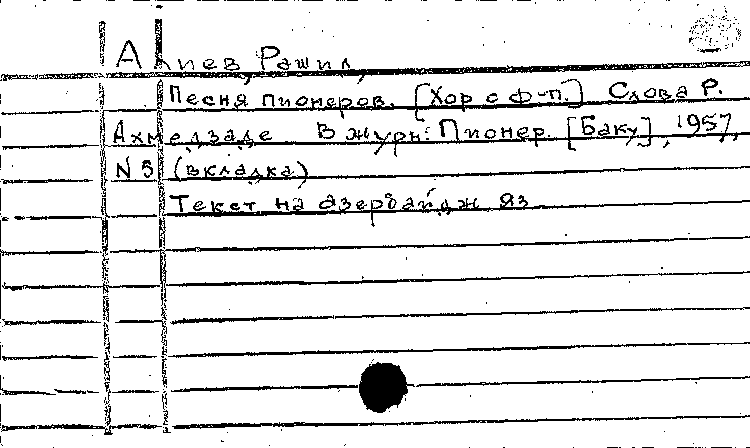 Алиев, Рашид,
Песня пионеров. [Хор с ф-п.] Слова Р.
Ахмедзаде. В журн: Пионер. [Баку], 1957,
N 5 (вкладка)
Текст на азербайдж яз